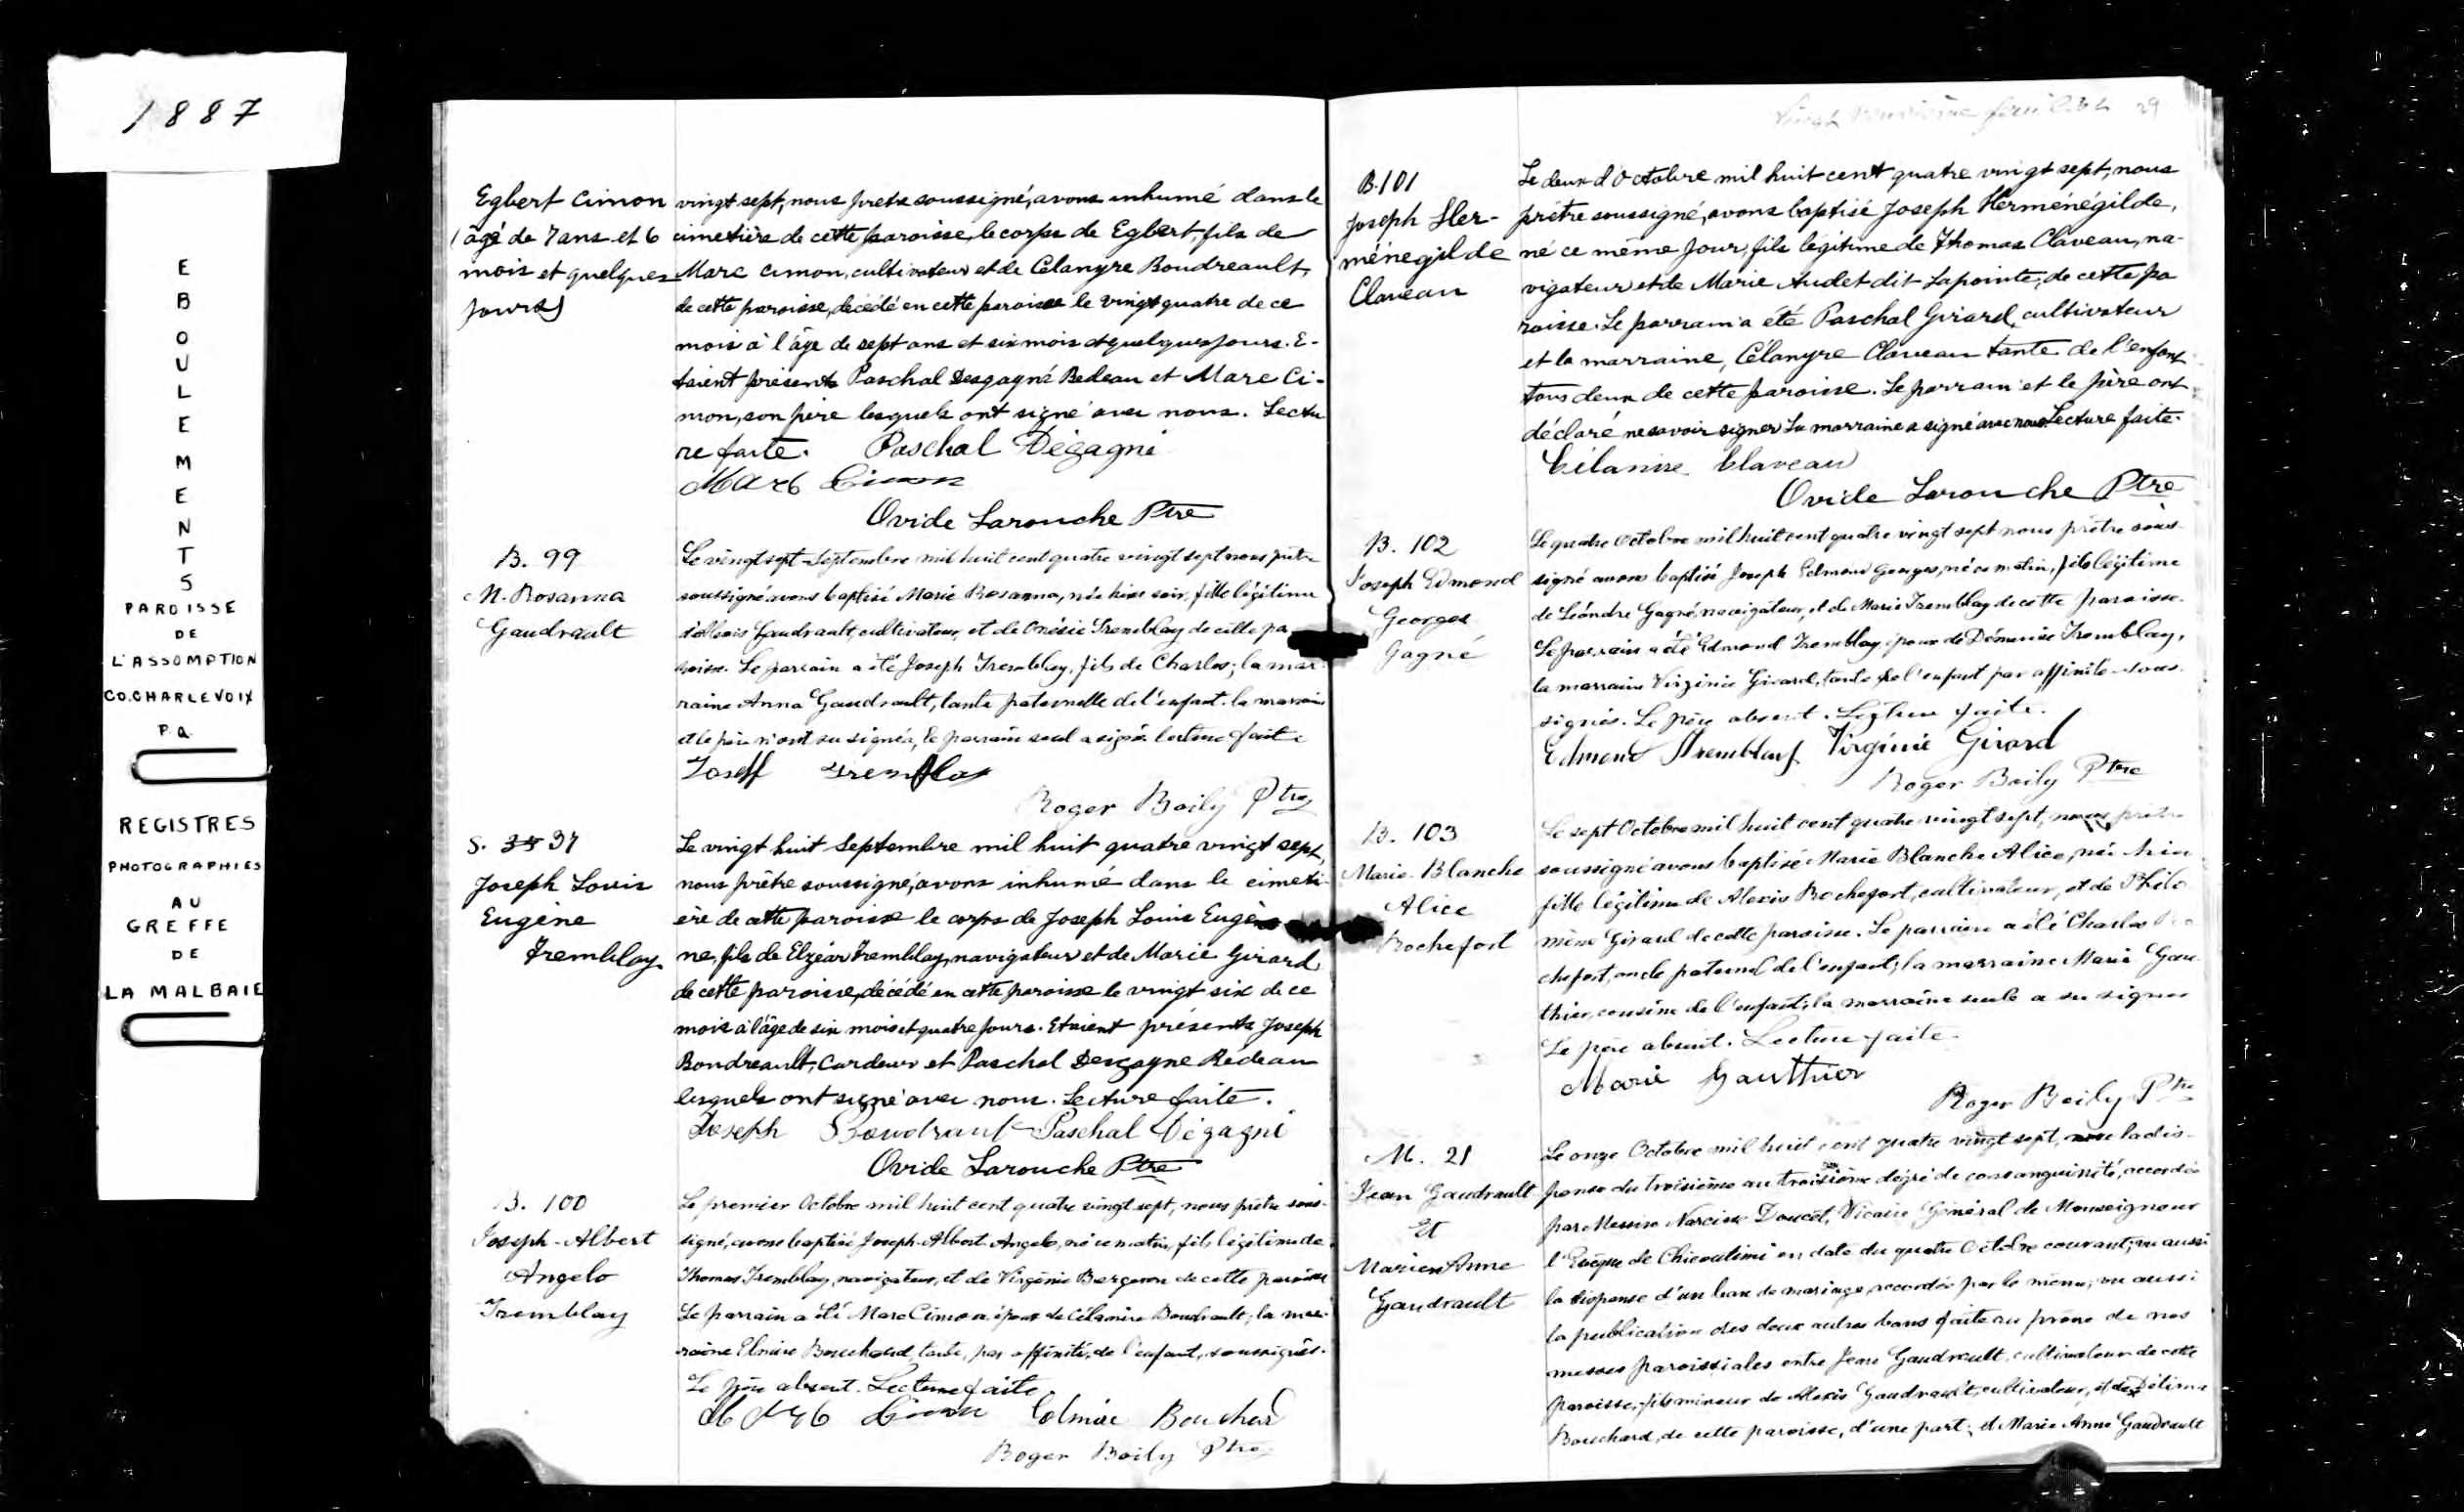 1887
EBOULEMENTS
PAROISSE
DE
L'ASSOMPTION
CO. CHARLEVOIX
P.Q.
REGISTRES
PHOTOGRAPHIES
AU
GREFFE
DE
LA MALBAIE
Egbert Cimon
(âgé de 7 ans et 6
mois et quelques
jours)
vingt sept, nous prêtre soussigné, avons inhumé dans le
cimetière de cette paroisse, le corps de Egbert, fils de
Marc Cimon, cultivateur et de Célanyre Boudreault,
de cette paroisse, décédé en cette paroisse le vingt quatre de ce
mois à l'âge de sept ans et six mois et quelques jours. E-
taient présents Paschal Desgagné Bedeau et Marc Ci-
mon, son père lesquels ont signé avec nous. Lectu
re faite. Paschal Dégagné
Marc Cimon
Ovide Larouche Ptre
B. 99
M. Rosanna
Gaudrault
Le vingt sept Septembre mil huit cent quatre vingt sept nous prêtre
soussigné avons baptisé Marie Rosanna, née hier soir, fille légitime
d'Alexis Gaudrault, cultivateur, et de Onésie Tremblay de cette pa
roisse. Le parrain a été Joseph Tremblay, fils de Charles; la mar
raine Anna Gaudrault, tante paternelle de l'enfant. la marraine
et le père n'ont su signer, le parrain seul a signé. lecture faite
Joseff Tremblay
Roger Boily Ptre
S. 35 37
Joseph Louis
Eugène
Tremblay
Le vingt huit Septembre mil huit quatre vingt sept,
nous prêtre soussigné, avons inhumé dans le cimeti-
ère de cette paroisse le corps de Joseph Louis Eugè
ne, fils de Elzéar Tremblay, navigateur et de Marie Girard
de cette paroisse, décédé en cette paroisse le vingt six de ce
mois à l'âge de six mois et quatre jours. Etaient présents Joseph
Boudreault, Cardeur et Paschal Desgagne Bédeau
lesquels ont signé avec nous. Lecture faite.
Joseph Boudrault Paschal Dégagné
Ovide Larouche Ptre
B. 100
Joseph-Albert
Angelo
Tremblay
Le premier Octobre mil huit cent quatre vingt sept, nous prêtre sous-
signé, avons baptisé Joseph-Albert Angelo, né ce matin, fils légitime de
Thomas Tremblay, navigateur, et de Virginie Bergeron de cette paroisse
Le parrain a été Marc Cimon époux de Célamire Boudrault; la mar-
raine Elmire Bouchard, tante, par affinité, de l'enfant, soussignés.
Le père absent. Lecture faite.
Marc Cimon Elmire Bouchard
Roger Boily Ptre
feuillet 29
B. 101
Joseph Her-
ménégilde
Claveau
Le deux d'Octobre mil huit cent quatre vingt sept, nous
prêtre soussigné, avons baptisé Joseph Herménégilde,
né ce même jour, fils légitime de Thomas Claveau, na-
vigateur et de Marie Audet dit Lapointe, de cette pa
roisse. Le parrain a été Paschal Girard, cultivateur
et la marraine, Célanyre Claveau tante de l'enfant
tous deux de cette paroisse. Le parrain et le père ont
déclaré ne savoir signer La marraine a signé avec nous Lecture faite.
Célanire Claveau
Ovide Larouche Ptre
B. 102
Joseph Edmond
Georges
Gagné
Le quatre Octobre mil huit cent quatre vingt sept nous prêtre sous-
signé avons baptisé Joseph Edmond Georges, né ce matin, fils légitime
de Léandre Gagné, navigateur, et de Marie Tremblay de cette paroisse.
Le parrain a été Edmond Tremblay époux de Démerise Tremblay,
la marraine Virginie Girard, tante de l'enfant par affinité sous-
signés. Le père absent. Lecture faite.
Edmond Tremblay Virginie Girard
Roger Boily Ptre
B. 103
Marie-Blanche
Alice
Rochefort
Le sept Octobre mil huit cent quatre vingt sept, nous prêtre
soussigné avons baptisé Marie Blanche Alice, née hier
fille légitime de Alexis Rochefort, cultivateur, et de Philo
mène Girard de cette paroisse. Le parrain a été Charles Ro
chefort, oncle paternel de l'enfant; la marraine Marie Gau
thier, cousine de l'enfant; la marraine seule a su signer
Le père absent. Lecture faite.
Marie Gauthier
Roger Boily Ptre
M. 21
Jean Gaudrault
et
Marie Anne
Gaudrault
Le onze Octobre mil huit cent quatre vingt sept, vu la dis-
pense du troisième au troisième degré de consanguinité, accordée
par Messire Narcisse Doucet, Vicaire Général de Monseigneur
l'Evêque de Chicoutimi en date du quatre Octobre courant; vu aussi
la dispense d'un ban de mariage accordée par le même; vu aussi
la publication des deux autres bans faite au prône de nos
messes paroissiales entre Jean Gaudrault, cultivateur de cette
paroisse, fils mineur de Alexis Gaudrault, cultivateur, et de Délima
Bouchard, de cette paroisse, d'une part; et Marie Anne Gaudrault